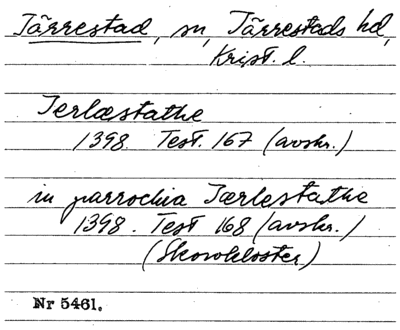 Järrestad, sn, Järrestads hd,
Krist. l.
Jerlæstathe
1398. Test. 167 (avskr.)
in parrochia Jærlestathe
1398. Test 168 (avskr.)
(Skovkloster)
Nr 5461.